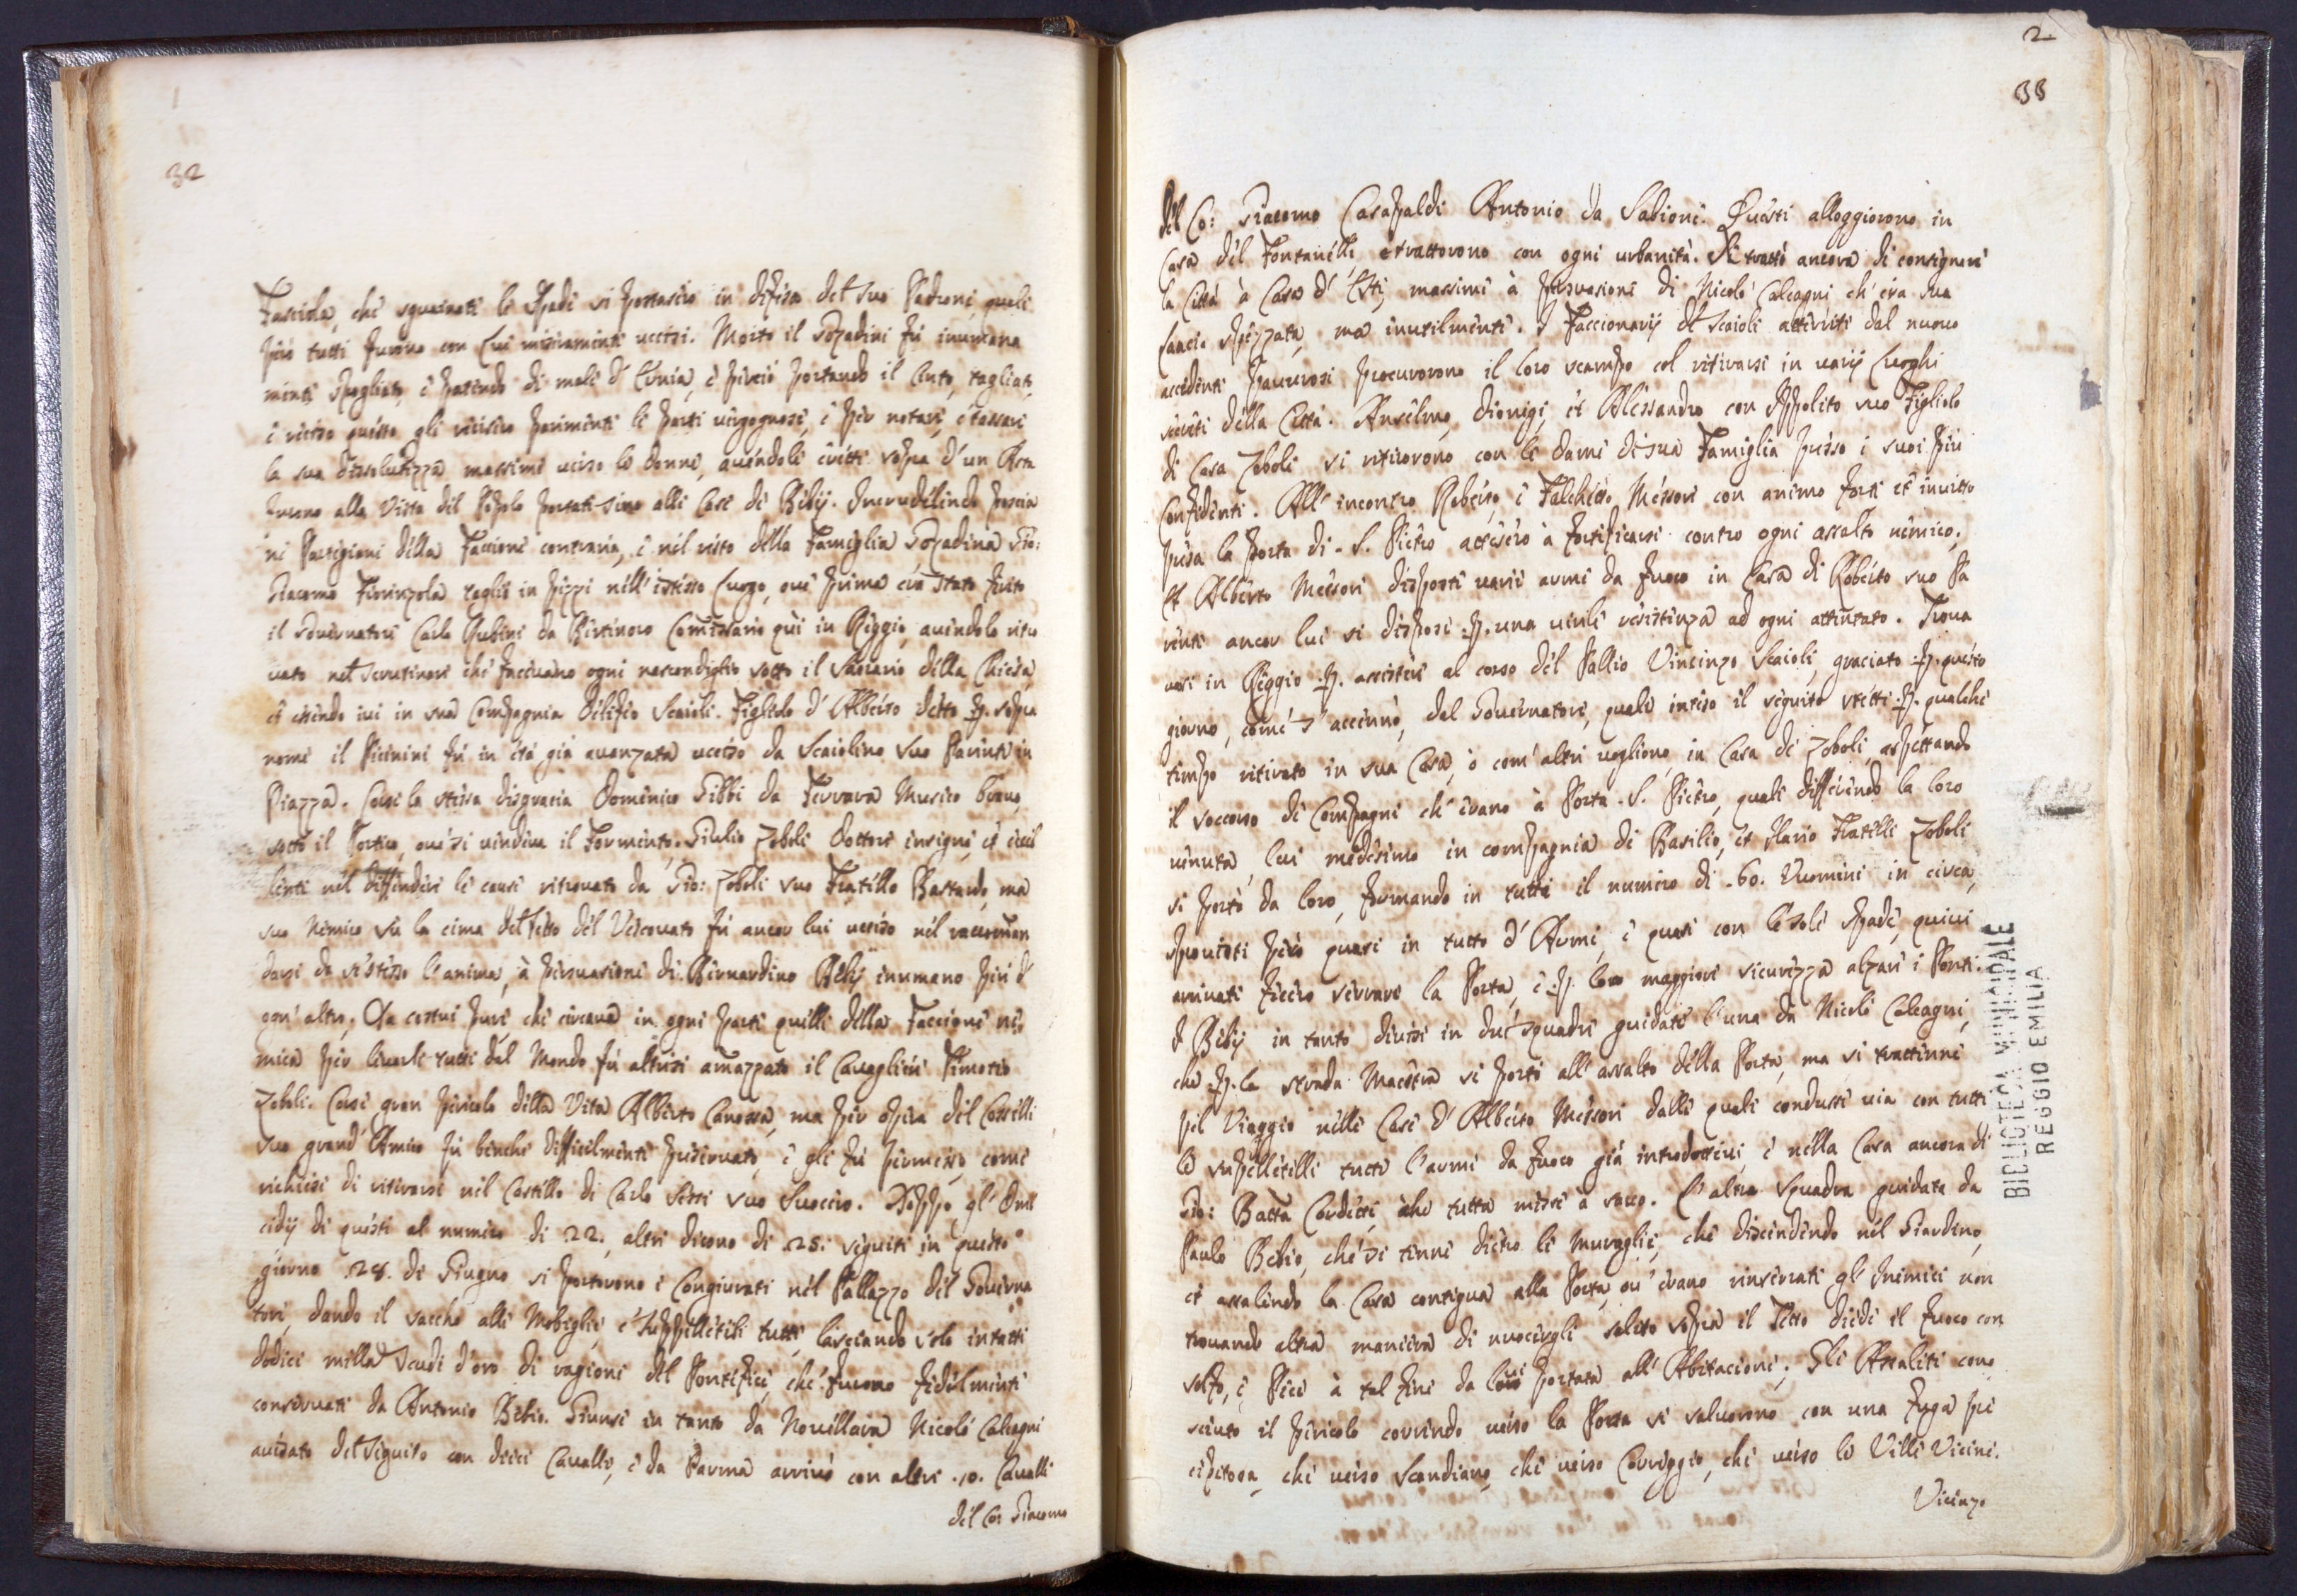 1
32
Fasciola, che sguainate le Spade si portascero in difesa del suo Padrone, quali
però tutti furono con lui miseramente uccisi. Morto il Gozadini fú inumana
mente spogliato, e patendo di male d'Ernia, e perciò portando il Cinto, tagliato,
e reciso questo gli recisero parimente le parti vergognose, e per notare, e tassare
la sua dissolutezza massime verso le donne, avendole erette sopra d'un Asta
furono alla vista del Popolo portate sino alle Case de Bebij. Incrudelindo poscia
ne Partigiani della Fazione contraria, e nel resto della Famiglia Gozadina Gio:
Giacomo Fiorinzola tagliò in pezzi nell'istesso luogo, ove prima era stato ferito
il Governatore Carlo Rubini da Bertinoro Comissario qui in Reggio, avendolo ritro
vato nel scrutinare che facevano ogni nascondiglio sotto il Sacrario della Chiesa
et essendo ivi in sua Compagnia Odifio Scaioli. Figliolo d'Alberto detto p. sopra
nome il Picinini fú in età già avanzata ucciso da Scaiolino suo Parente in
Piazza. Corse la stessa disgracia Domenico Gibbi da Ferrara Musico bravo,
sotto il Portico, ove si vendeva il Formento. Giulio Zoboli Dottore insigne, et ecel
lente nel diffendere le cause ritrovato da Gio: Zoboli suo Fratello Bastardo, ma
suo Nemico sù la cima del tetto del Vescovato fú ancor lui ucciso nel racoman
darsi da se stesso l'anima, à persuasione di Bernardino Bebij inumano piú d'
ogn'altro. Da costui pure che cercava in ogni parte quelli della Faccione ne
mica per levarli tutti dal Mondo fú altresi amazzato il Cavagliere Timoteo
Zoboli. Corse gran pericolo della Vita Alberto Canossa, ma per opera del Castelli
suo grand'Amico fú benche difficilmente preservato, e gli fú permesso, come
richiese di ritirarsi nel Castello di Carlo Sessi suo Suocero. Doppo gl'Omi
cidij di questi al numero di 22. altri dicono di 25. seguiti in questo
giorno 28. di Giugno si portorono i Congiurati nel Pallazzo del Governa
tore, dando il saccho alle Mobiglie, e Suppellétili tutti, lasciando solo intatti
dodici milla Scudi d'oro di ragione del Pontefice, che furono fidelmente
conservati da Antonio Bebio. Giunse in tanto da Novellara Nicoló Calcagni
avisato del seguito con dieci Cavalli, e da Parma arrivó con altri .10. Cavalli
del Co: Giacomo
2
33
del Co: Giacomo Carapaldi Antonio da Sabione. Questi alloggiorono in
Casa del Fontanelli, e trattorono con ogni urbanità. Si trattò ancora di consignare
la Città à Casa d'Este, massime à persuasione di Nicoló Calcagni ch'era sua
Lancia spezzata, ma inutilmente. I Faccionarij de Scaioli atterriti dal nuovo
accidente paurosi procurorono il loro scampo col ritirarsi in varij Luoghi
secreti della Città. Anselmo, Dionigi, et Alessandro con Ippolito suo Figliolo
di Casa Zoboli si ritirorono con le dame di sua Famiglia presso i suoi piú
Confidenti. All'incontro Roberto, e Falchetto Messori con animo forte et invitto
presa la Porta di .S. Pietro attesero à fortificarsi contro ogni assalto nemico.
Et Alberto Messori disposte varie armi da fuoco in Casa di Roberto suo Pa
rente ancor lui si dispose p. una virile resistenza ad ogni attentato. Trova
vasi in Reggio p. assistere al corso del Pallio Vincenzo Scaioli, graciato p. questo
giorno, come s'accennò, dal Governatore, quale inteso il seguito stette p. qualche
tempo ritirato in sua Casa, ò com'altri vogliono, in Casa de Zoboli, aspettando
il soccorso de Compagni ch'erano à Porta .S. Pietro, quali differendo la loro
venuta, lui medesimo in compagnia di Basilio, et Ilario Fratelli Zoboli
si portò da loro, formando in tutti il numero di .60. Uuomini in circa,
sproveduti però quasi in tutto d'Armi, e quasi con le sole spade, quivi
arrivati fecero serrare la Porta, e p. loro maggiore sicurezza alzare i Ponti.
I Bebij in tanto divisi in due squadre guidate l'una da Nicoló Calcagni,
che p. la strada Maestra si portò all'assalto della Porta, ma si trattenne
pel Viaggio nelle Case d'Alberto Messori dalle quali condusse via con tutte
le supellétilli tutte l'armi da fuoco già introdottevi, e nella Casa ancora di
Gio: Batta Cordetti, che tutta misse a sacco. L'altra Squadra guidata da
Paulo Bebio, che si tenne dietro le Muraglie, che discendendo nel Giardino,
et assalendo la Casa contigua alla Porta, ov'erano rinserrati gl'Inimici non
trovando altra maniera di nuocergli salito sopra il Tetto diede il fuoco con
solfo, e Pece à tal fine da lui portata all'Abitacione. Gli Assaliti cono
sciuto il pericolo correndo verso la Porta si salvorono con una fuga pre
cipitosa, chi verso Scandiano, chi verso Correggio, chi verso le Ville Vicine.
Vicinzo
BIBLIOTECA MUNICIPALE
REGGIO EMILIA